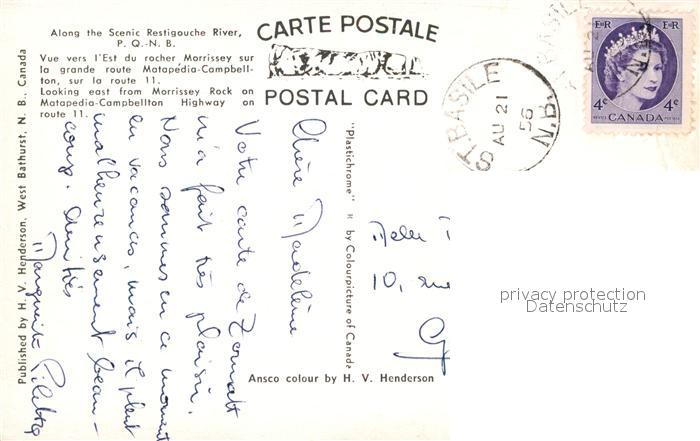 Along the Scenic Restigouche River,
P. Q.-N. B.
Vue vers l'Est du rocher Morrissey sur
la grande route Matapédia-Campbell-
ton, sur la route 11.
Looking east from Morrissey Rock on
Matapedia-Campbellton Highway on
route 11.
CARTE POSTALE
POSTAL CARD
ST. BASILE
AU 21
56
N.B.
E R
E R
4¢
4¢
CANADA
Chère Madeleine
Votre carte de Zermatt
m'a fait très plaisir.
Nous sommes en ce moment
en vacances, mais il pleut
malheureusement beau-
coup. Amitiés
Marguerite
"Plastichrome" ® by Colourpicture of Canada
Published by H. V. Henderson, West Bathurst, N. B., Canada
Ansco colour by H. V. Henderson
Melle
10, rue
privacy protection
Datenschutz